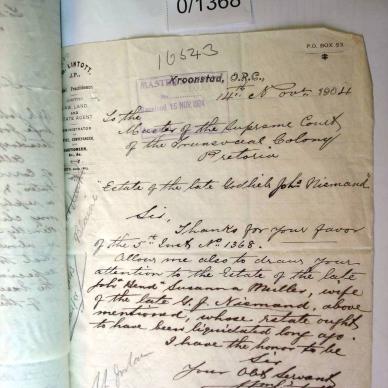 0/1368
LINTOTT,
J.P.,
P.O. BOX 53
16543
Kroonstad, O.R.C.,
14th Novr. 1904
MAST
Received 15 NOV 1904
LAW, LAND,
ESTATE AGENT
ADMINISTRATOR
To the
Master of the Supreme Court
of the Transvaal Colony
Pretoria
"Estate of the late Gotlieb Johs Niemand"
Sir,
Thanks for your favor
of the 5th Inst No. 1368.
Allow me also to draw your
attention to the Estate of the late
Johs Hend Susanna Muller, wife
of the late G. J. Niemand, above
mentioned, whose estate ought
to have been liquidated long ago.
I have the honor to be
Sir
Your Obt Servant